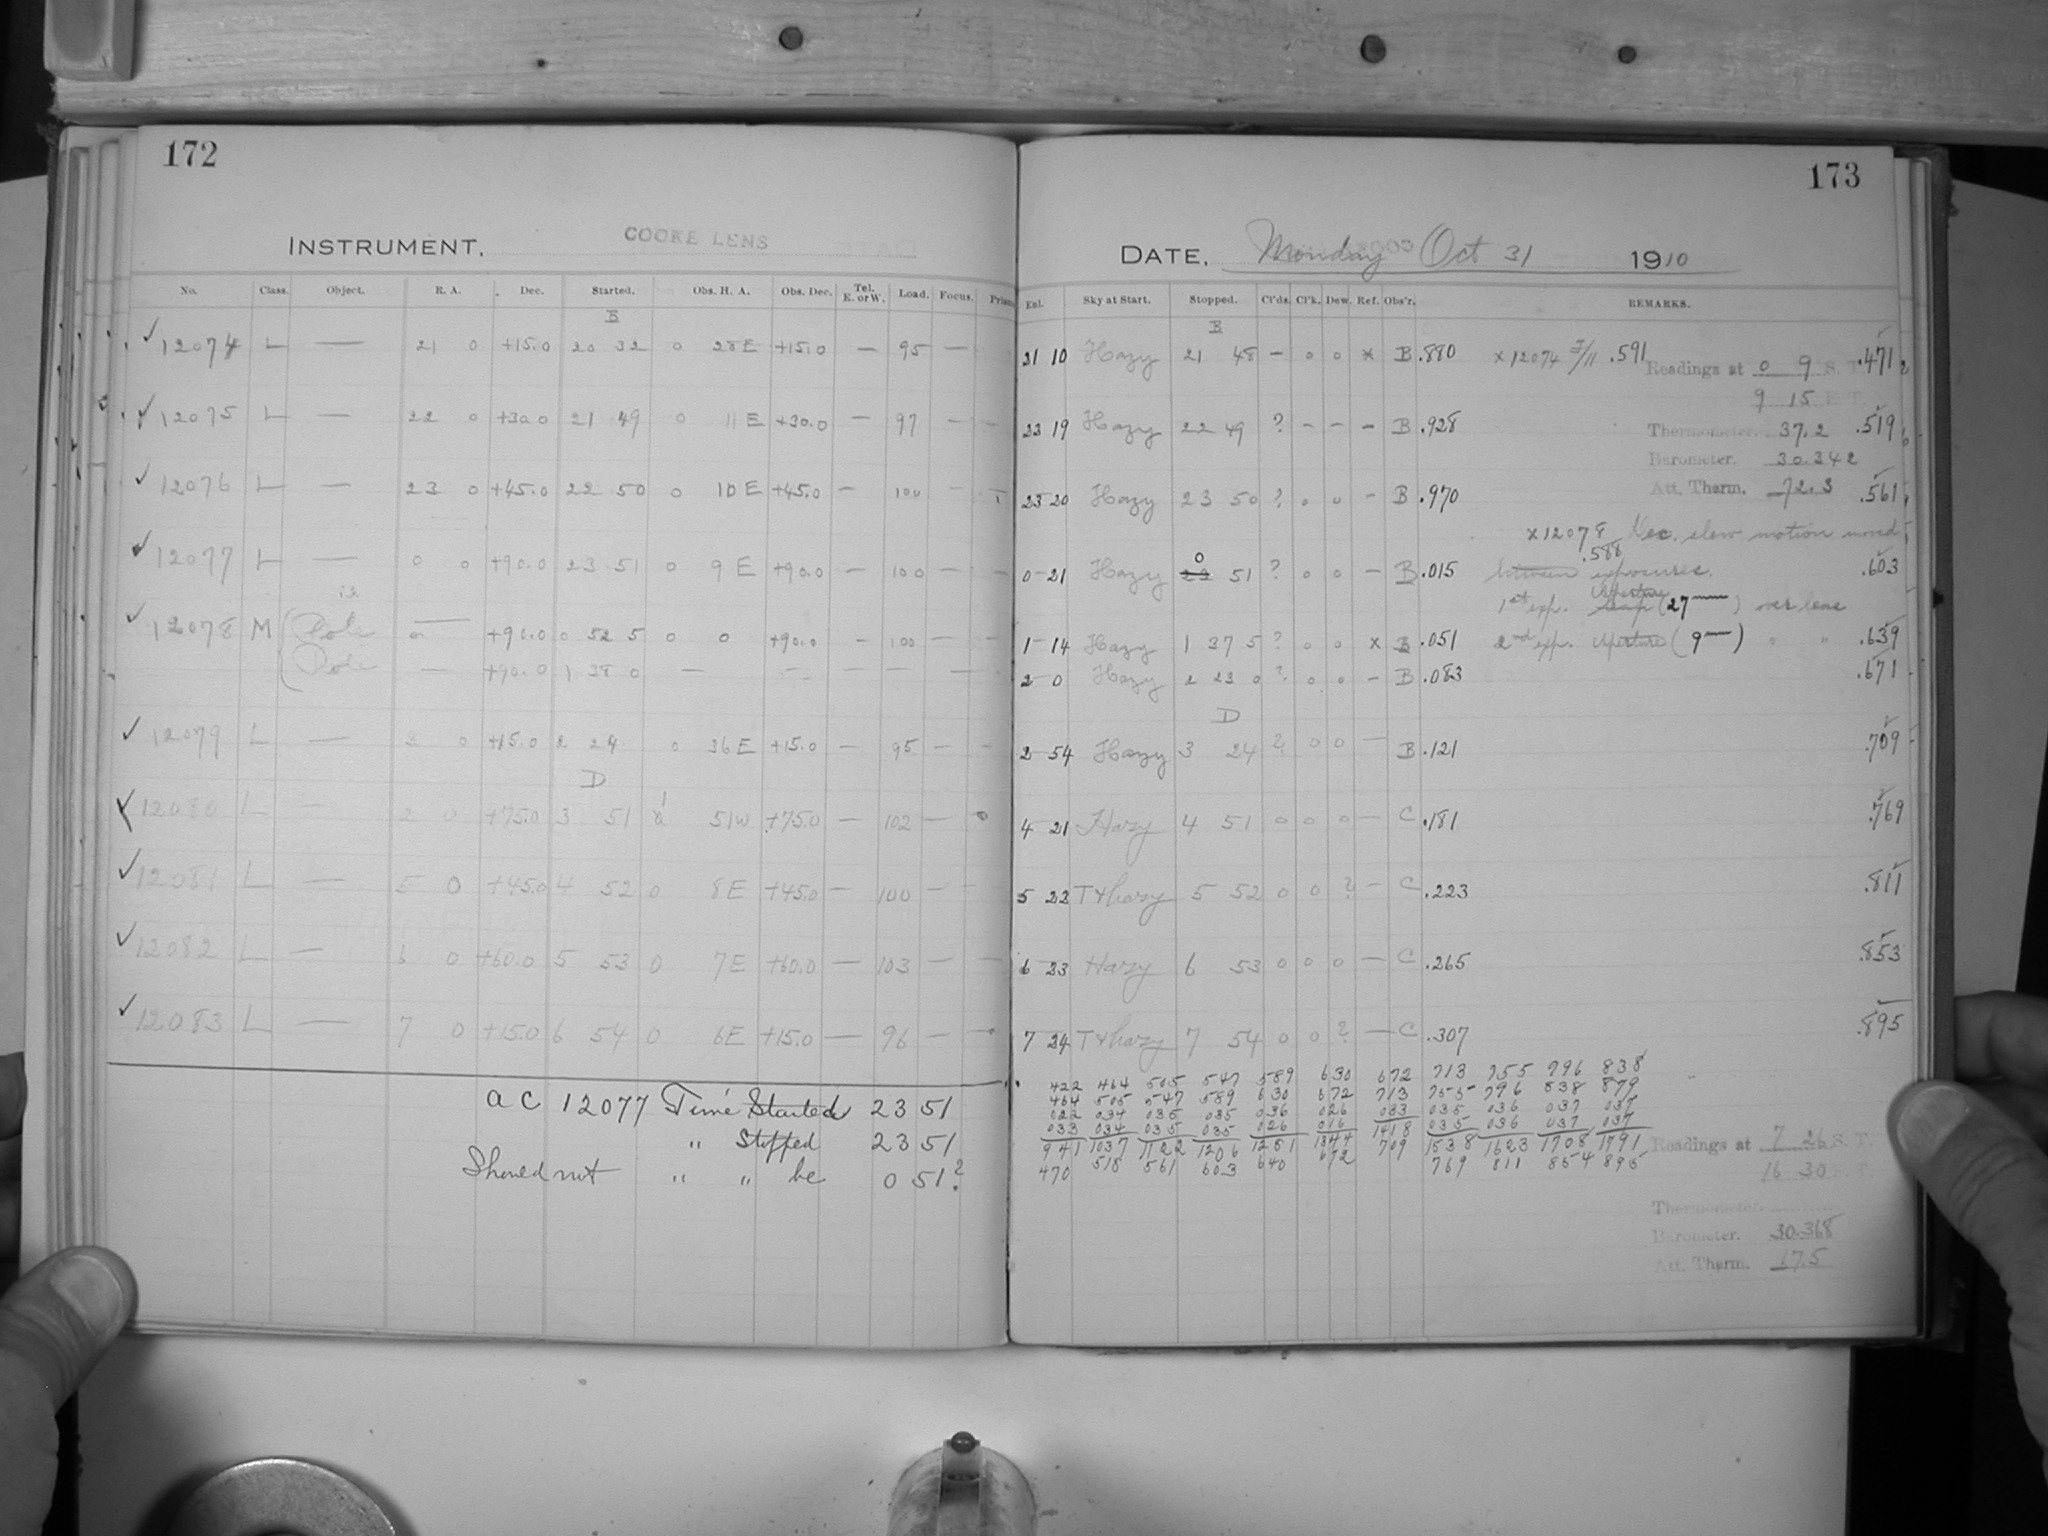 172
INSTRUMENT. COOKE LENS
No. Class. Object. R. A. Dec. Started. Obs. H. A. Obs. Dec. Tel. E. or W. Load. Focus.
B
✓ 12074 L — 21 0 +15.0 20 32 0 28 E +15.0 — 95 —
✓ 12075 L — 22 0 +30.0 21 49 0 11 E +30.0 — 97 — —
✓ 12076 L — 23 0 +45.0 22 50 0 10 E +45.0 — 100 — —
✓ 12077 L — 0 0 +90.0 23 51 0 9 E +90.0 — 100 — —
✓ 12078 M Pole — +90.0 0 52 5 0 0 +90.0 — 100 — —
Pole — +90.0 1 38 0 — — — — — —
✓ 12079 L — 3 0 +15.0 2 24 0 36 E +15.0 — 95 — —
D
✓ 12080 L — 2 0 +75.0 3 51 51 W +75.0 — 102 —
✓ 12081 L — 5 0 +45.0 4 52 0 8 E +45.0 — 100 — —
✓ 12082 L — 6 0 +60.0 5 53 0 7 E +60.0 — 103 — —
✓ 12083 L — 7 0 +15.0 6 54 0 6 E +15.0 — 96 — —
a c 12077 Time Started 23 51
" Stopped 23 51
Should not " " be 0 51?
173
DATE. Monday Oct 31 1910
Sky at Start. Stopped. Cl'ds. Cl'k. Dew. Ref. Obs'r. REMARKS.
B
21 10 Hazy 21 48 — 0 0 x B .880 x 12074 I/11 .591 .471
Readings at 0 9 S. T.
9 15 E. T.
23 19 Hazy 22 49 ? — — — B .928 Thermometer. 37.2 .519
Barometer. 30.342
23 20 Hazy 23 50 ? 0 0 — B .970 Att. Therm. 72.3 .561
x 12078 Dec. slow motion moved
0 .588
0-21 Hazy 23 51 ? 0 0 — B .015 between exposures. .603
Aperture
1st exp. (27 mm) over lens
1-14 Hazy 1 37 5 ? 0 0 x B .051 2nd exp. Aperture (9 mm) " " .639
2-0 Hazy 2 23 0 ? 0 0 — B .083 .671
D
2-54 Hazy 3 24 ? 0 0 — B .121 .709
4 21 Hazy 4 51 0 0 0 — C .181 .769
5 22 T & hazy 5 52 0 0 ? — C .223 .811
6-23 Hazy 6 53 0 0 0 — C .265 .853
7 24 T & hazy 7 54 0 0 ? — C .307 .895
422 464 505 547 589 630 672 713 755 796 838
464 505 547 589 630 672 713 755 796 838 879
022 034 035 035 036 026 083 035 036 037 037
033 034 035 035 026 016 035 036 037 037
941 1037 1122 1206 1281 1344 1418 1538 1623 1708 1791
470 518 561 603 640 672 709 769 811 854 895
Readings at 7 26 S. T.
16 30 E. T.
Thermometer.
Barometer. 30.368
Att. Therm. 67.5